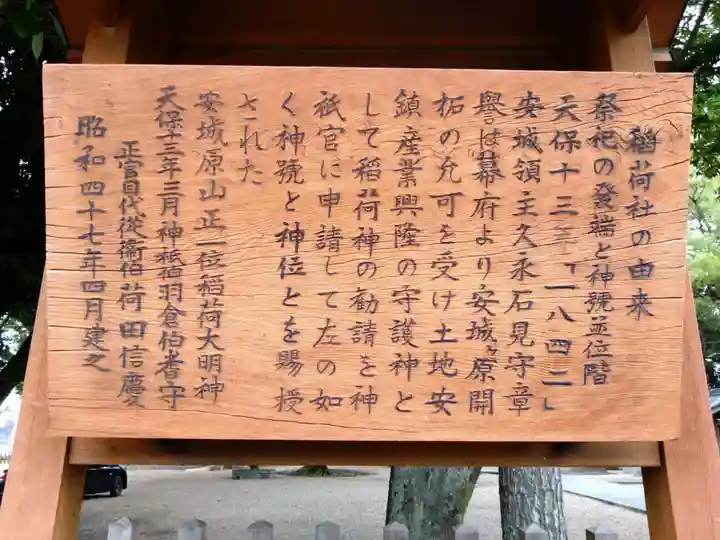 稲荷社の由来
祭祀の発端と神號並位階
天保十三年「一八四二」
安城領主久永石見守章
譽は幕府より安城ヶ原開
拓の允可を受け土地安
鎮産業興隆の守護神と
して稲荷神の勧請を神
祇官に申請して左の如
く神號と神位とを賜授
された
安城原山正一位稲荷大明神
天保十三年三月神祇伯羽倉伯耆守
正官目代従衛伯荷田信慶
昭和四十七年四月建之